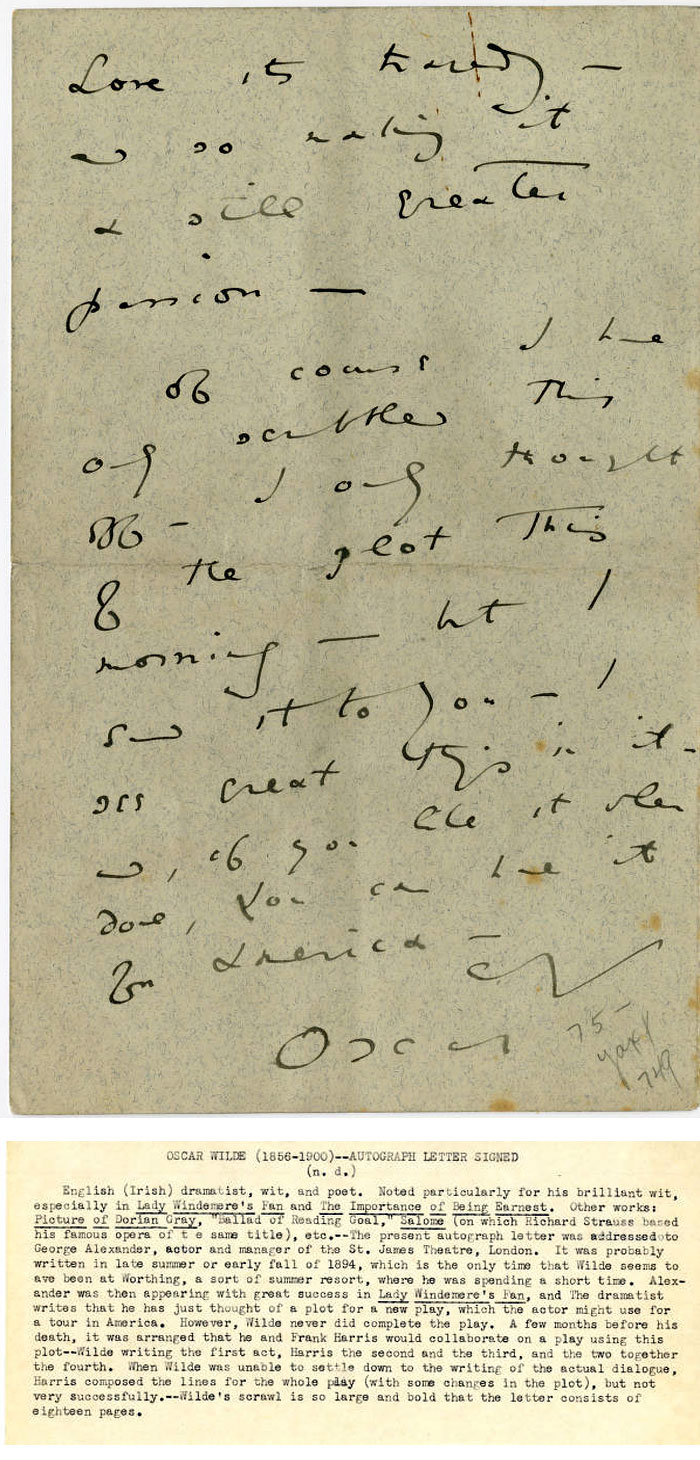 Love its tragedy —
and so making it
a still greater
passion —
Of course I have
only scribbled this
off — I only thought
of the plot this
morning — but I
send it to you — I
see great things in it —
and, if you like it when
done, you can have it
for America — Ever
Oscar
75-
OSCAR WILDE (1856-1900)--AUTOGRAPH LETTER SIGNED
(n. d.)
English (Irish) dramatist, wit, and poet. Noted particularly for his brilliant wit,
especially in Lady Windemere's Fan and The Importance of Being Earnest. Other works:
Picture of Dorian Gray, "Ballad of Reading Goal," Salome (on which Richard Strauss based
his famous opera of t e same title), etc.--The present autograph letter was addressed to
George Alexander, actor and manager of the St. James Theatre, London. It was probably
written in late summer or early fall of 1894, which is the only time that Wilde seems to
ave been at Worthing, a sort of summer resort, where he was spending a short time. Alex-
ander was then appearing with great success in Lady Windemere's Fan, and The dramatist
writes that he has just thought of a plot for a new play, which the actor might use for
a tour in America. However, Wilde never did complete the play. A few months before his
death, it was arranged that he and Frank Harris would collaborate on a play using this
plot--Wilde writing the first act, Harris the second and the third, and the two together
the fourth. When Wilde was unable to settle down to the writing of the actual dialogue,
Harris composed the lines for the whole play (with some changes in the plot), but not
very successfully.--Wilde's scrawl is so large and bold that the letter consists of
eighteen pages.